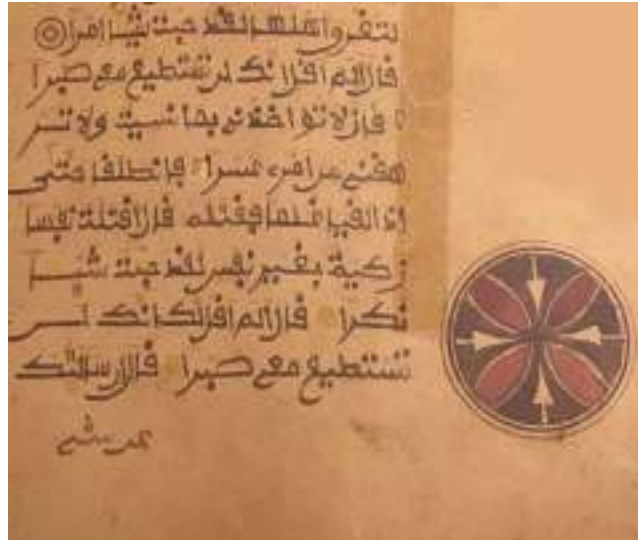 لتغرق اهلها لقد جيت شيا امرا
قال الم اقل انك لن تستطيع معي صبرا
قال لا تواخذني بما نسيت ولا تر
هقني من امري عسرا فانطلقا حتى
اذا لقيا غلما فقتله قال اقتلت نفسا
زكية بغير نفس لقد جيت شيا
نكرا قال الم اقل لك انك لن
تستطيع معي صبرا قال ان سالتك
عن شي